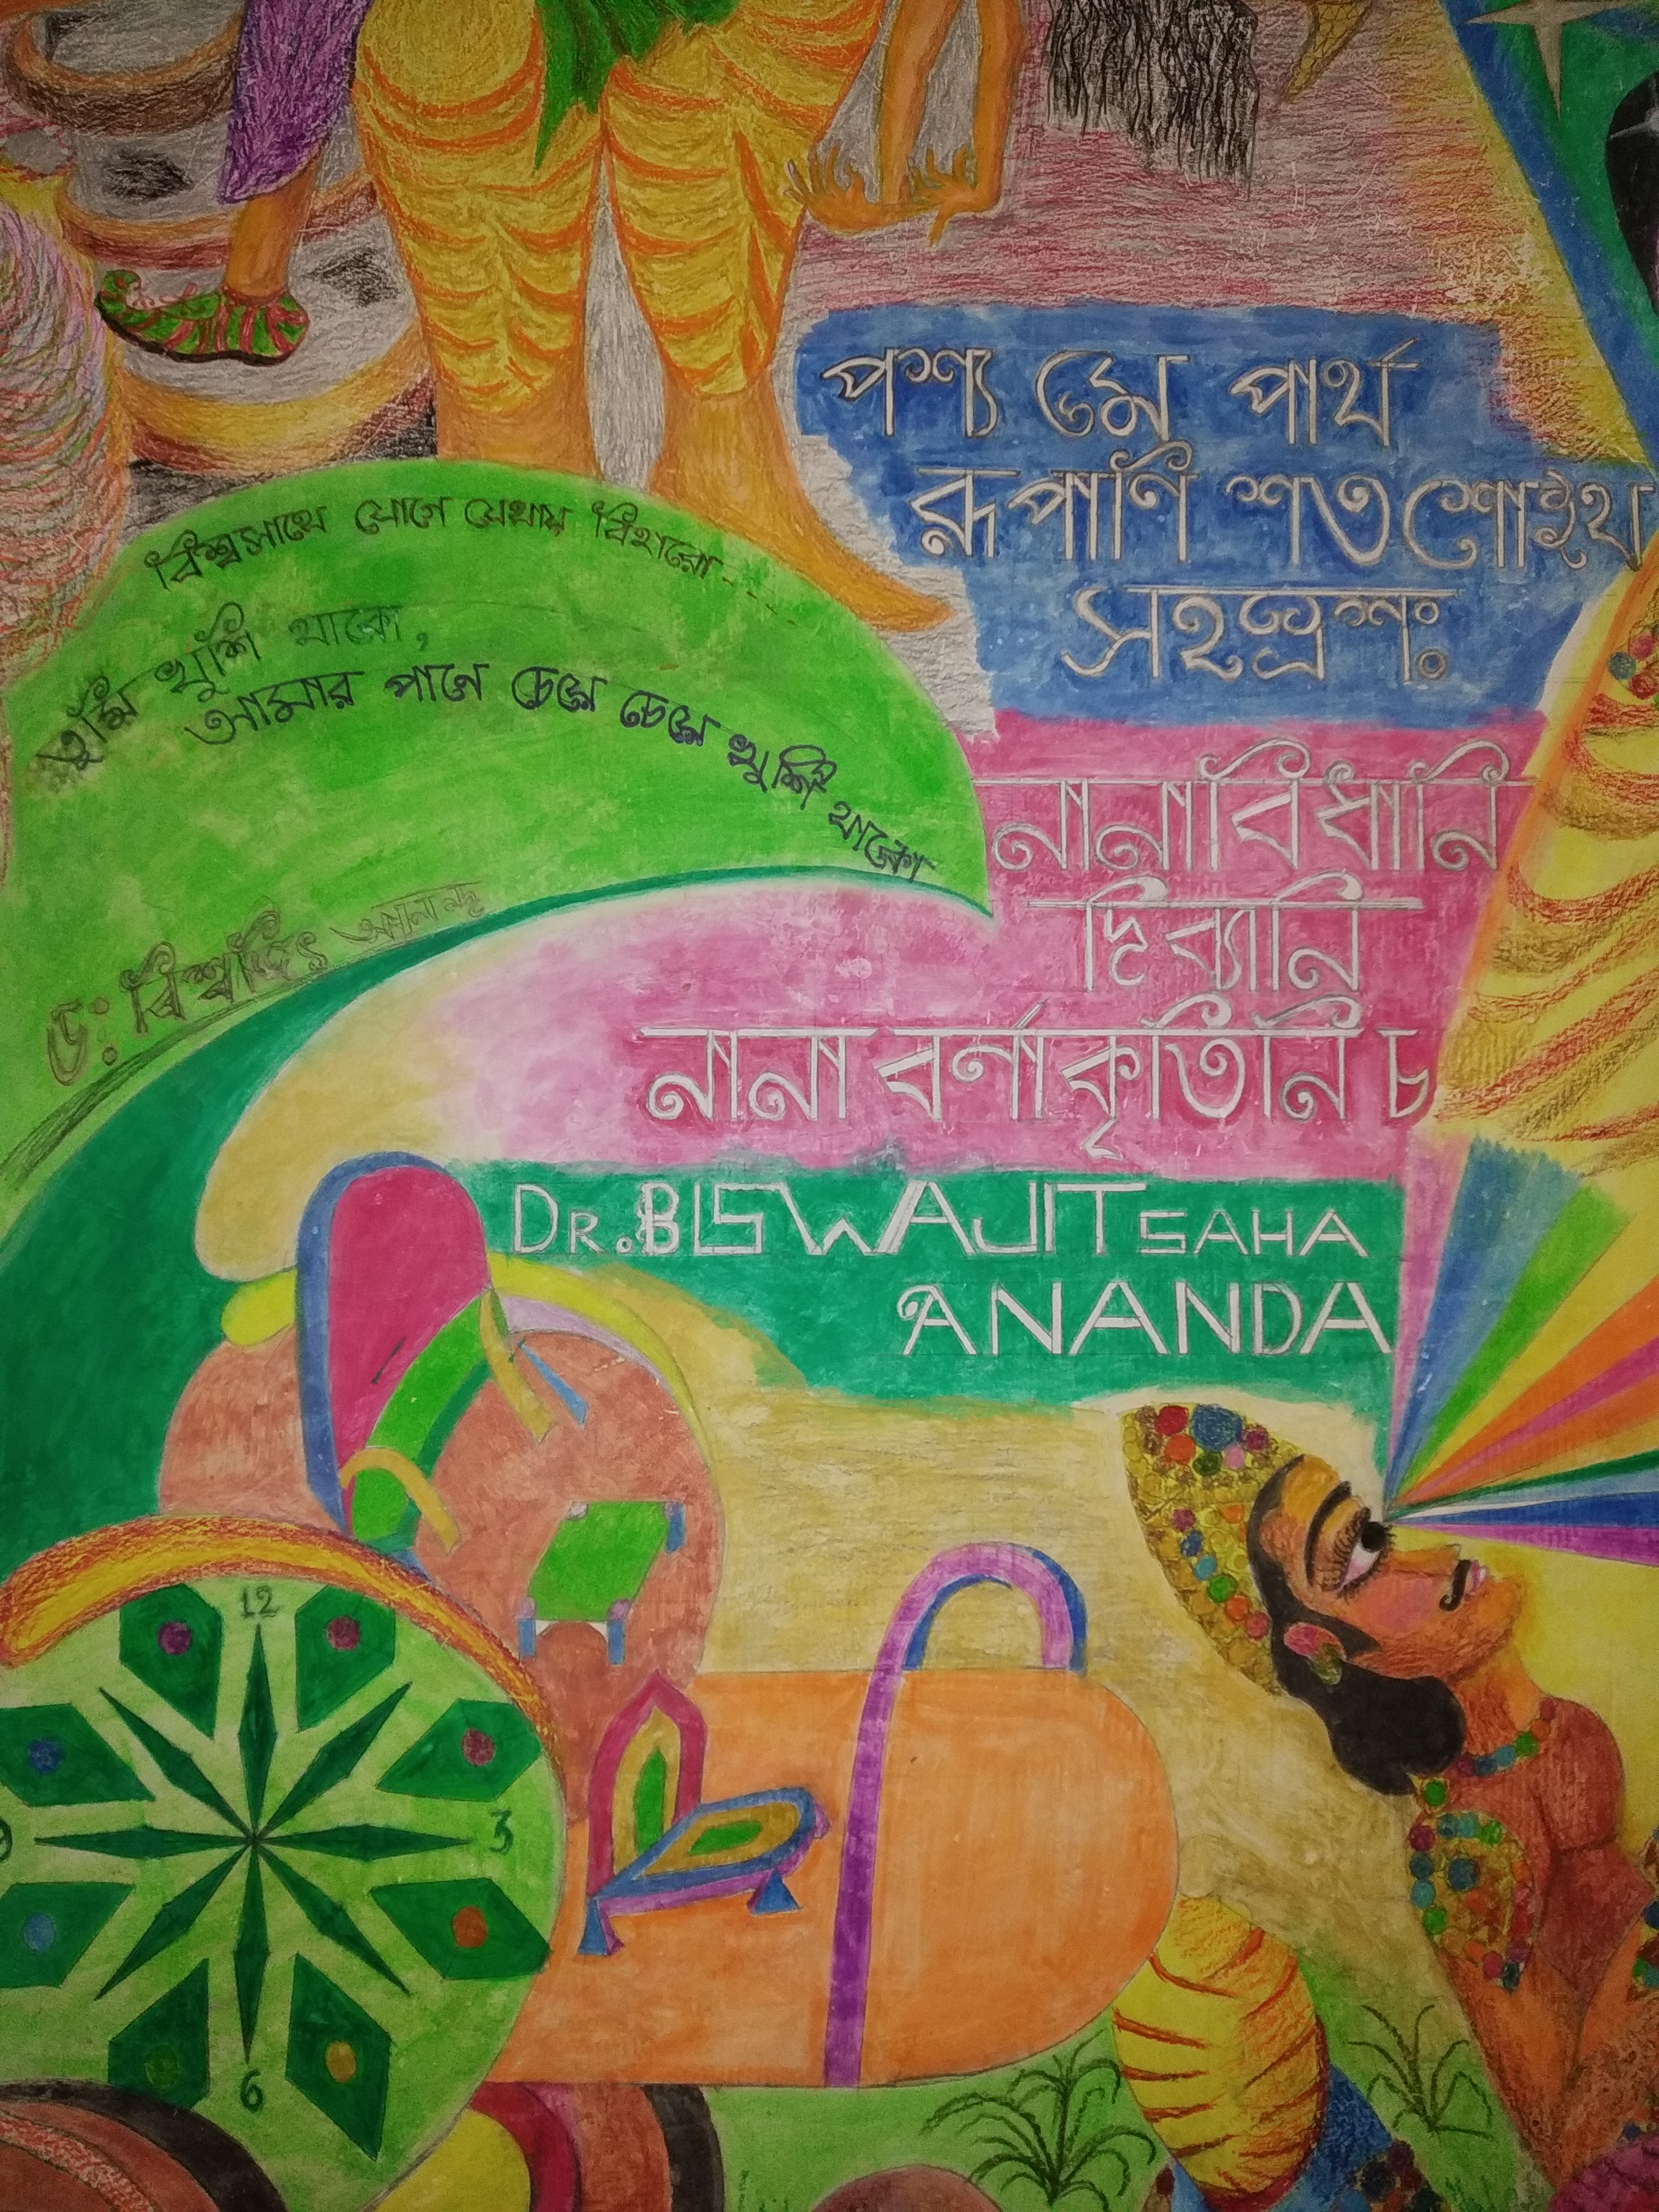 পশ্য মে পার্থ
রূপাণি শতশোহথ
সহস্রশঃ
বিশ্বসাথে যোগে যেথায় বিহারো...
তুমি খুশি থাকো,
আমার পানে চেয়ে চেয়ে খুশি থাকো
নানাবিধানি
দিব্যানি
নানা বর্ণাকৃতিনি চ
ডঃ বিশ্বজিৎ আনন্দ
DR. BISWAJIT SAHA
ANANDA
12
3
9
6